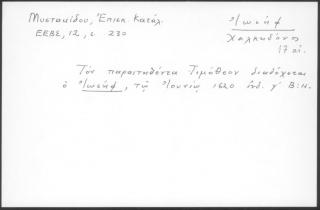 Μυστακίδου, Ἐπισκ. Κατάλ.
ΕΕΒΣ, 12, σ. 230
Ἰωσήφ
Χαλκηδόνος
17 αἰ.
Τὸν παραιτηθέντα Τιμόθεον διαδέχεται
ὁ Ἰωσήφ, τῷ Ἰουνίῳ 1620 ἰνδ. γ΄ Β:Η.